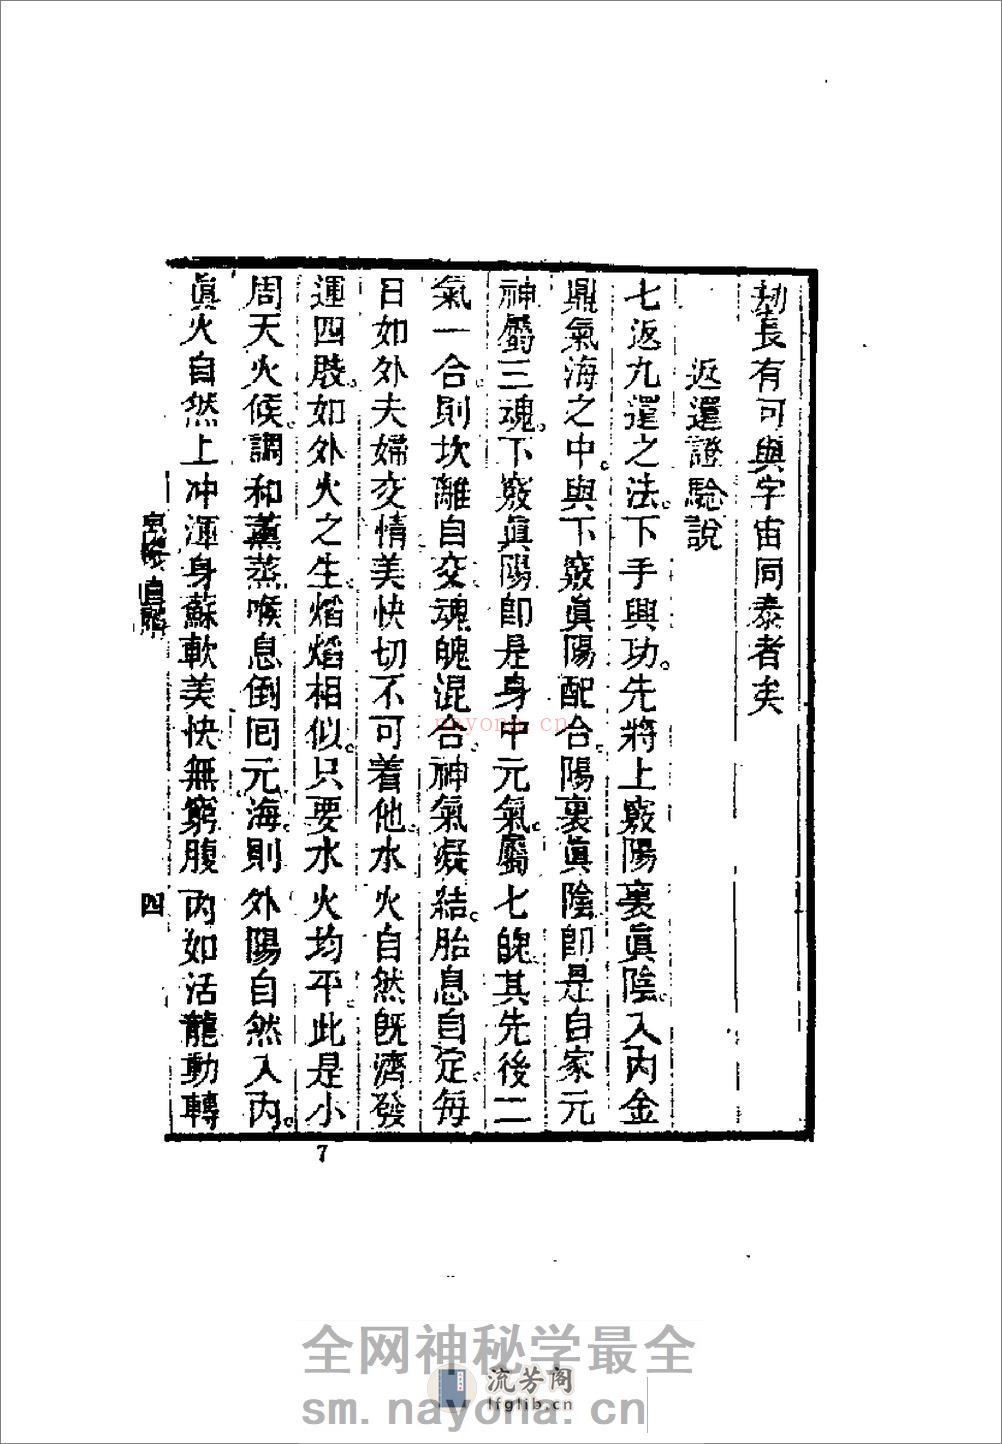 劫長有可與宇宙同泰者矣
返還證驗說
七返九還之法。下手興功。先將上竅陽裏眞陰。入內金
鼎氣海之中。與下竅眞陽配合。陽裏眞陰。即是自家元
神。屬三魂。下竅眞陽。即是身中元氣。屬七魄。其先後二
氣一合。則坎離自交。魂魄混合。神氣凝結。胎息自定。每
日如外夫婦交情美快。切不可着他。水火自然旣濟。發
運四肢。如外火之生。熖熖相似。只要水火均平。此是小
周天火候。調和薰蒸。喉息倒回元海。則外陽自然入內。
眞火自然上冲。渾身蘇軟。美快無窮。腹內如活龍動轉
直解
四
7
nayona.cn
全网神秘学最全
流芳阁
lfglib.cn
sm.nayona.cn